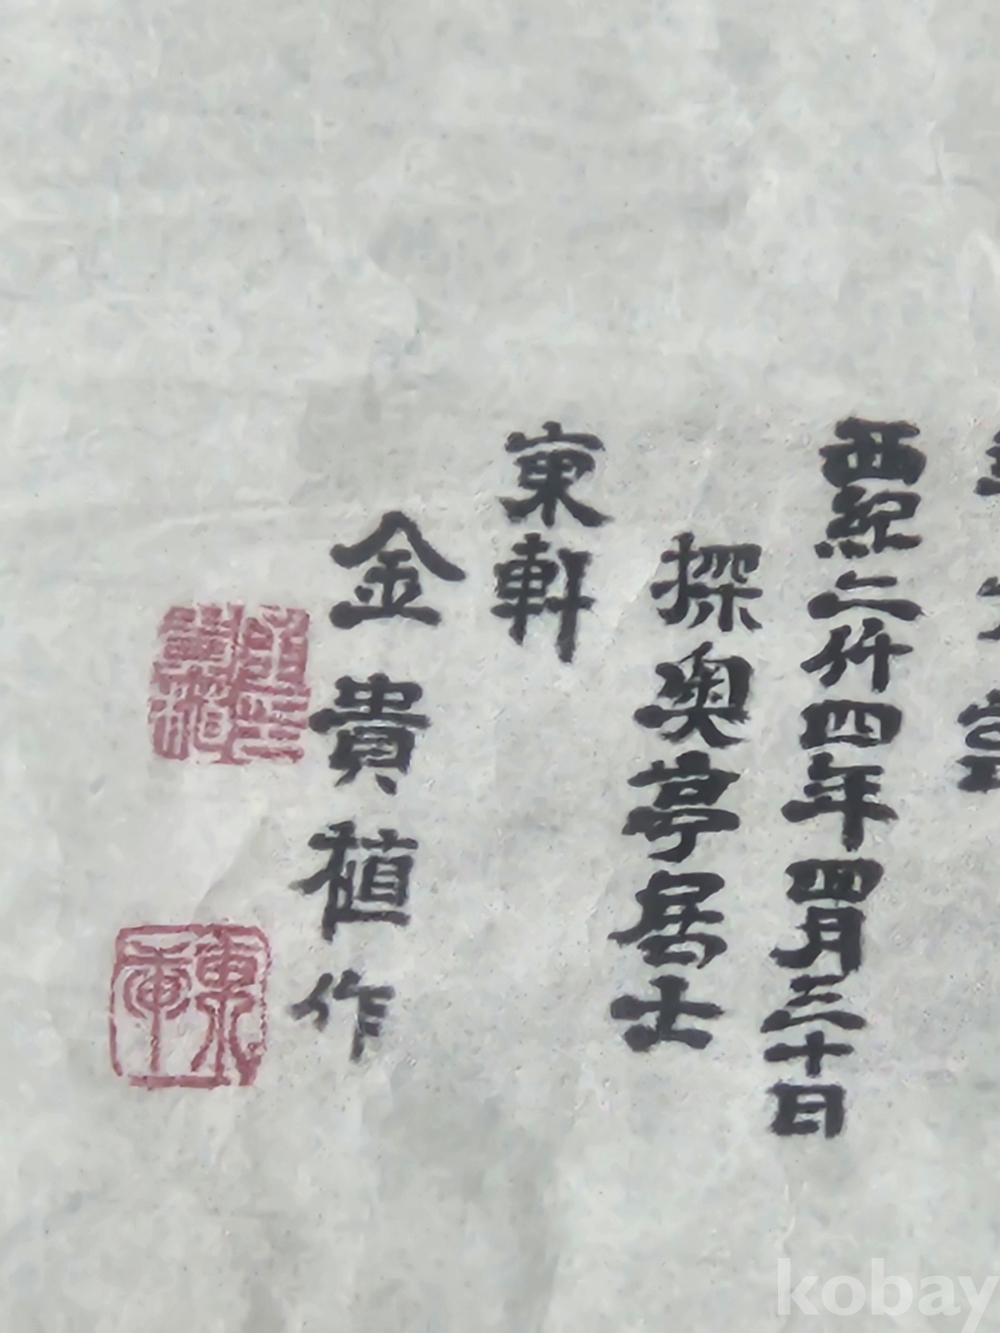 西紀二仟四年四月三十日
探奧亭居士
東軒
金貴植作
東軒
kobay